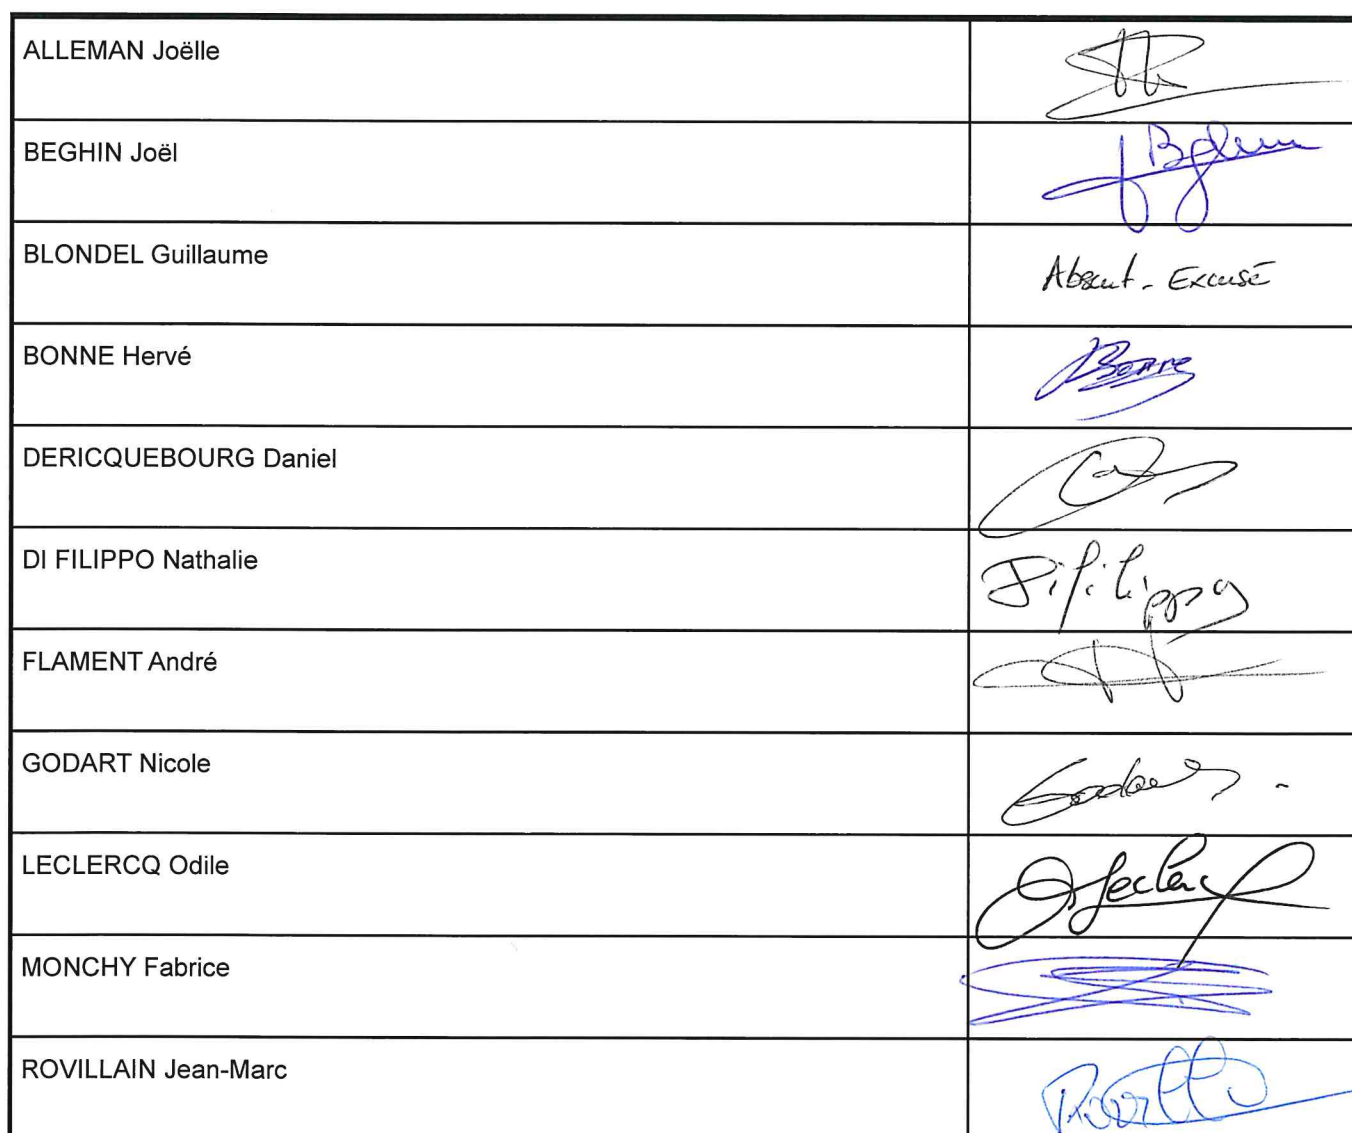 ALLEMAN Joëlle
BEGHIN Joël
BLONDEL Guillaume
Absent - Excusé
BONNE Hervé
Bonne
DERICQUEBOURG Daniel
DI FILIPPO Nathalie
Di Filippo
FLAMENT André
GODART Nicole
Godart
LECLERCQ Odile
O Leclercq
MONCHY Fabrice
ROVILLAIN Jean-Marc